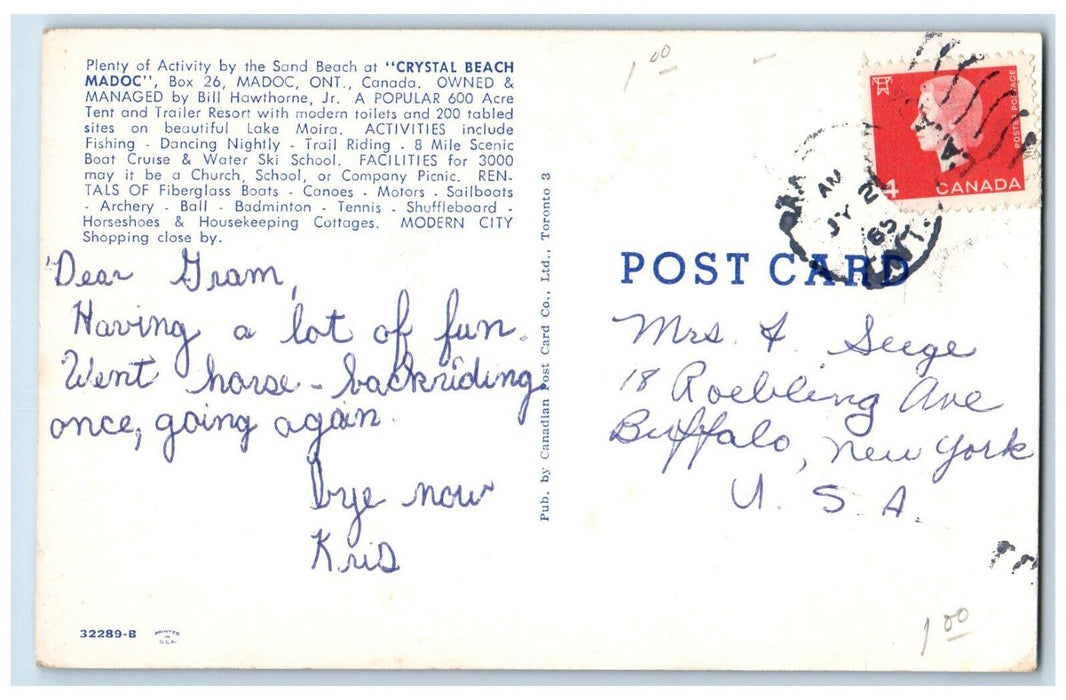 Plenty of Activity by the Sand Beach at "CRYSTAL BEACH
MADOC", Box 26, MADOC, ONT., Canada. OWNED &
MANAGED by Bill Hawthorne, Jr. A POPULAR 600 Acre
Tent and Trailer Resort with modern toilets and 200 tabled
sites on beautiful Lake Moira. ACTIVITIES include
Fishing - Dancing Nightly - Trail Riding - 8 Mile Scenic
Boat Cruise & Water Ski School. FACILITIES for 3000
may it be a Church, School, or Company Picnic. REN-
TALS OF Fiberglass Boats - Canoes - Motors - Sailboats
- Archery - Ball - Badminton - Tennis - Shuffleboard -
Horseshoes & Housekeeping Cottages. MODERN CITY
Shopping close by.
Dear Gram,
Having a lot of fun.
Went horse-backriding
once, going again.
bye now
Kris
32289-B
PRINTED
IN
U.S.A.
Pub. by Canadian Post Card Co., Ltd., Toronto 3
1 00
POSTES POSTAGE
4 CANADA
AM
JY 2
65
ONT.
POST CARD
Mrs. F. Seege
18 Roebling Ave
Buffalo, New York
U. S. A.
1 00